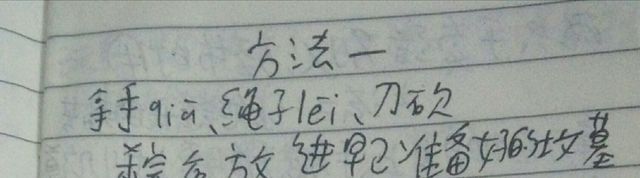 方法一
拿手qiā、绳子lēi、刀砍
放进早已准备好的坟墓